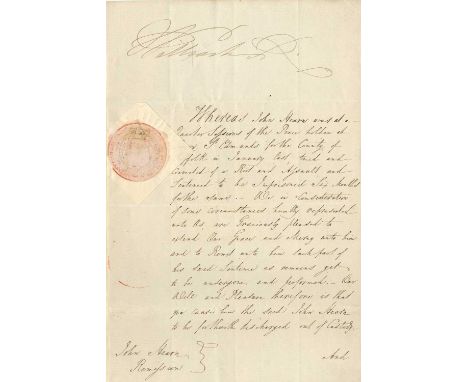 William R
Whereas John Hearn was at a
Quarter Sessions of the Peace holden at
St Edmunds for the County of
folk in January last, tried and
Convicted of a Riot and Assault and
Sentenced to be Imprisoned Six Months
for the same. We in Consideration
of some circumstances humbly represented
unto Us, are Graciously pleased to
extend Our Grace and Mercy unto him
and to Remit unto him such part of
his said Sentence as remains yet
to be undergone and performed. Our
Will and Pleasure therefore is that
you cause him the said John Hearn
to be forthwith discharged out of Custody
John Hearn
Remission
And